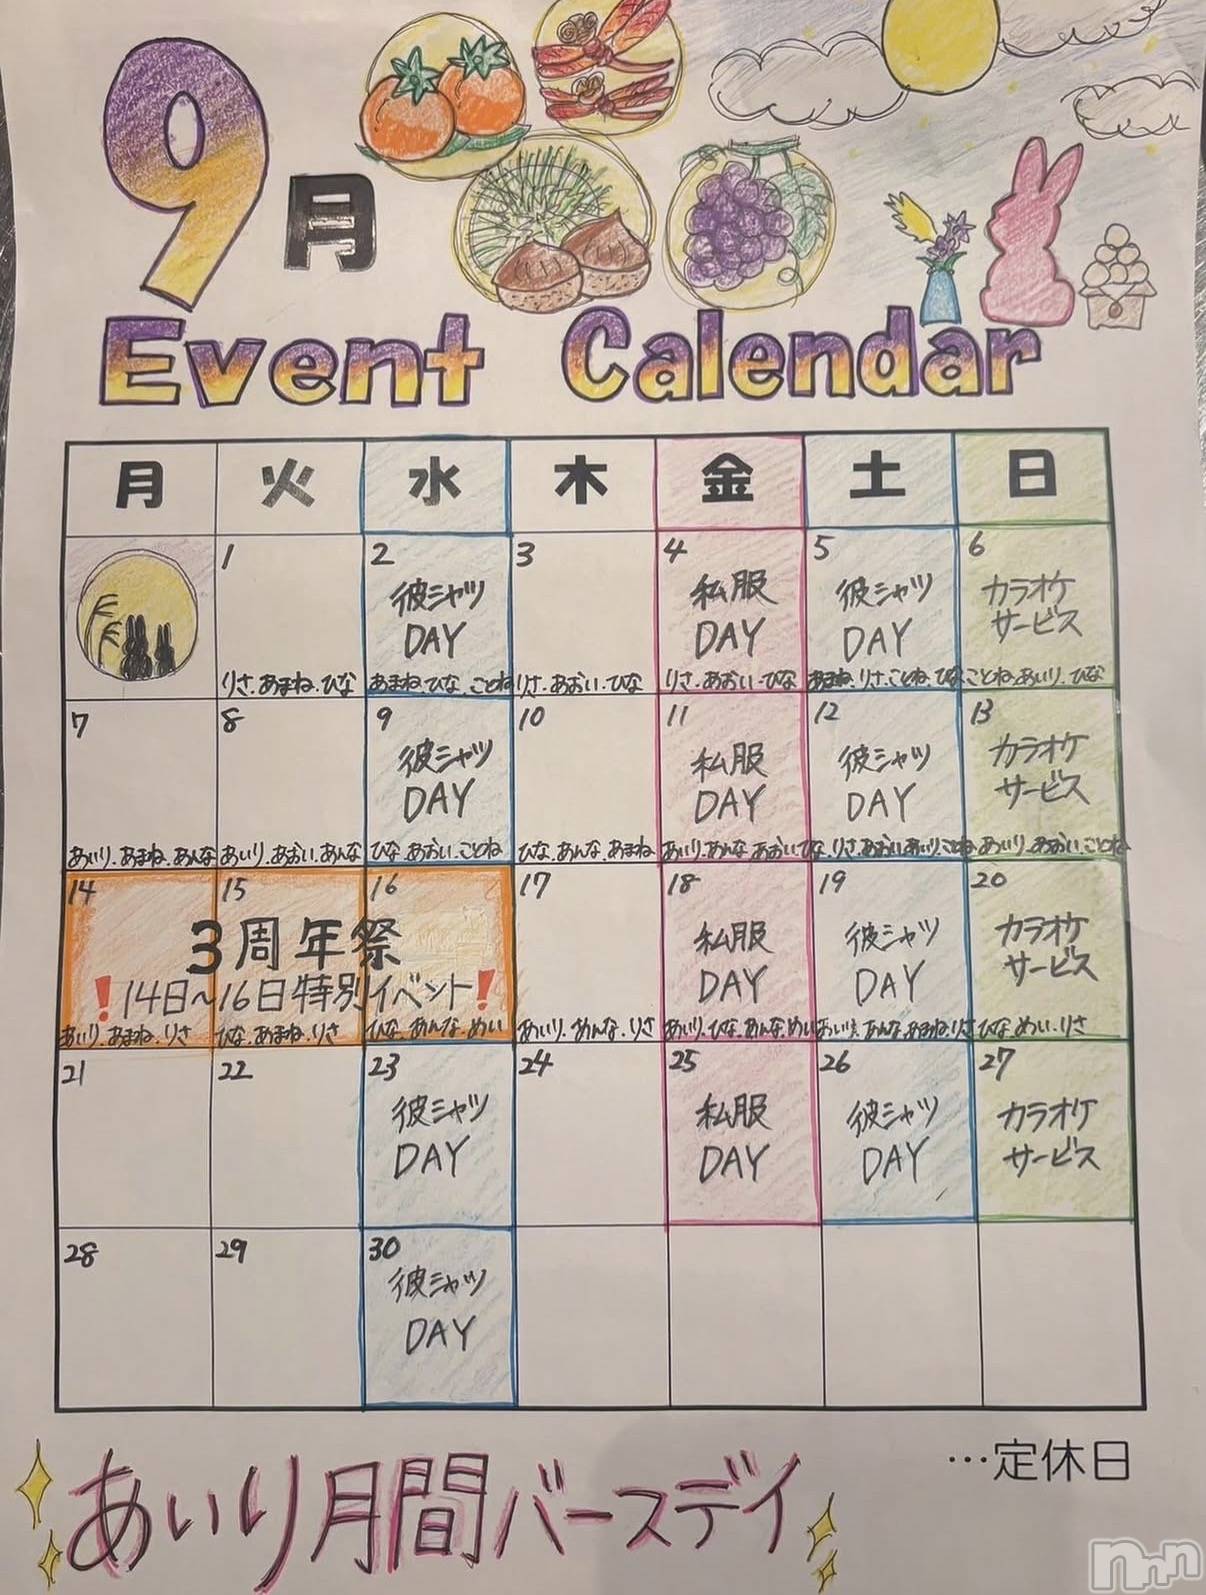 9月
Event Calendar
月 火 水 木 金 土 日
1 2 3 4 5 6
彼シャツ DAY
私服 DAY
彼シャツ DAY
カラオケ サービス
りさ.あまね.ひな
あまね.ひな.ことね
りさ.あおい.ひな
りさ.あおい.ひな
あまね.りさ.ことね.ひな
ことね.あいり.ひな
7 8 9 10 11 12 13
彼シャツ DAY
私服 DAY
彼シャツ DAY
カラオケ サービス
あいり.あまね.あんな
あいり.あおい.あんな
ひな.あおい.ことね
ひな.あんな.あまね
あいり.あんな.あおい.ひな
りさ.あおい.あいり.ことね
あいり.あおい.ことね
14 15 16 17 18 19 20
3周年祭
❗14日~16日特別イベント❗
私服 DAY
彼シャツ DAY
カラオケ サービス
あいり.あまね.りさ
ひな.あまね.りさ
ひな.あんな.めい
あいり.あんな.りさ
あいり.ひな.あんな.めい
あんな.あまね.りさ
ひな.めい.りさ
21 22 23 24 25 26 27
彼シャツ DAY
私服 DAY
彼シャツ DAY
カラオケ サービス
28 29 30
彼シャツ DAY
…定休日
あいり月間バースデイ
nnn